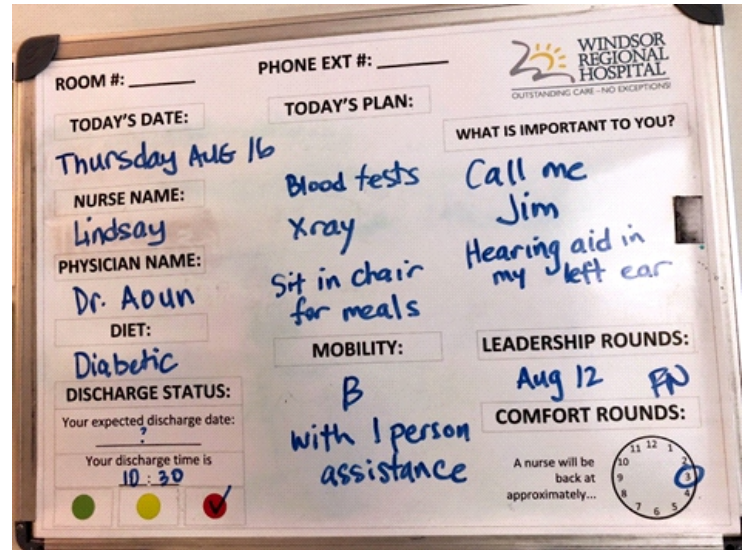 ROOM #: ________
PHONE EXT #: ________
WINDSOR
REGIONAL
HOSPITAL
OUTSTANDING CARE – NO EXCEPTIONS!
TODAY'S DATE:
Thursday AUG 16
NURSE NAME:
Lindsay
PHYSICIAN NAME:
Dr. Aoun
DIET:
Diabetic
DISCHARGE STATUS:
Your expected discharge date:
?
Your discharge time is
10:30
TODAY'S PLAN:
Blood tests
Xray
Sit in chair
for meals
MOBILITY:
B
with 1 person
assistance
WHAT IS IMPORTANT TO YOU?
Call me
Jim
Hearing aid in
my left ear
LEADERSHIP ROUNDS:
Aug 12 FN
COMFORT ROUNDS:
A nurse will be
back at
approximately...
12 1 2 3 4 5 6 7 8 9 10 11